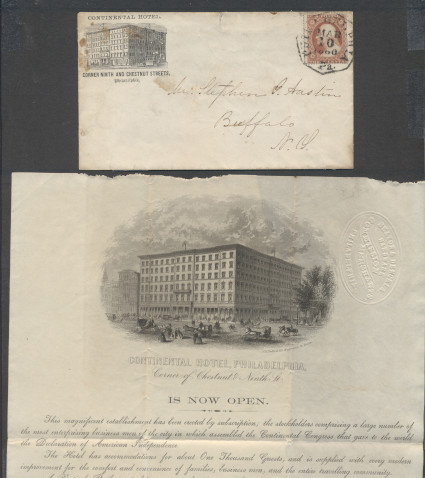 CONTINENTAL HOTEL,
CORNER NINTH AND CHESTNUT STREETS,
Philadelphia.
PA.
Mr. Stephen P. Hastin
Buffalo
N.Y.
CONTINENTAL HOTEL, PHILADELPHIA,
Corner of Chestnut & Ninth St.
IS NOW OPEN.
This magnificent establishment has been erected by subscription; the stockholders comprising a large number of
the most enterprising business men of the city in which assembled the Continental Congress that gave to the world
the Declaration of American Independence.
The Hotel has accommodations for about One Thousand Guests, and is supplied with every modern
improvement for the comfort and convenience of families, business men, and the entire travelling community.